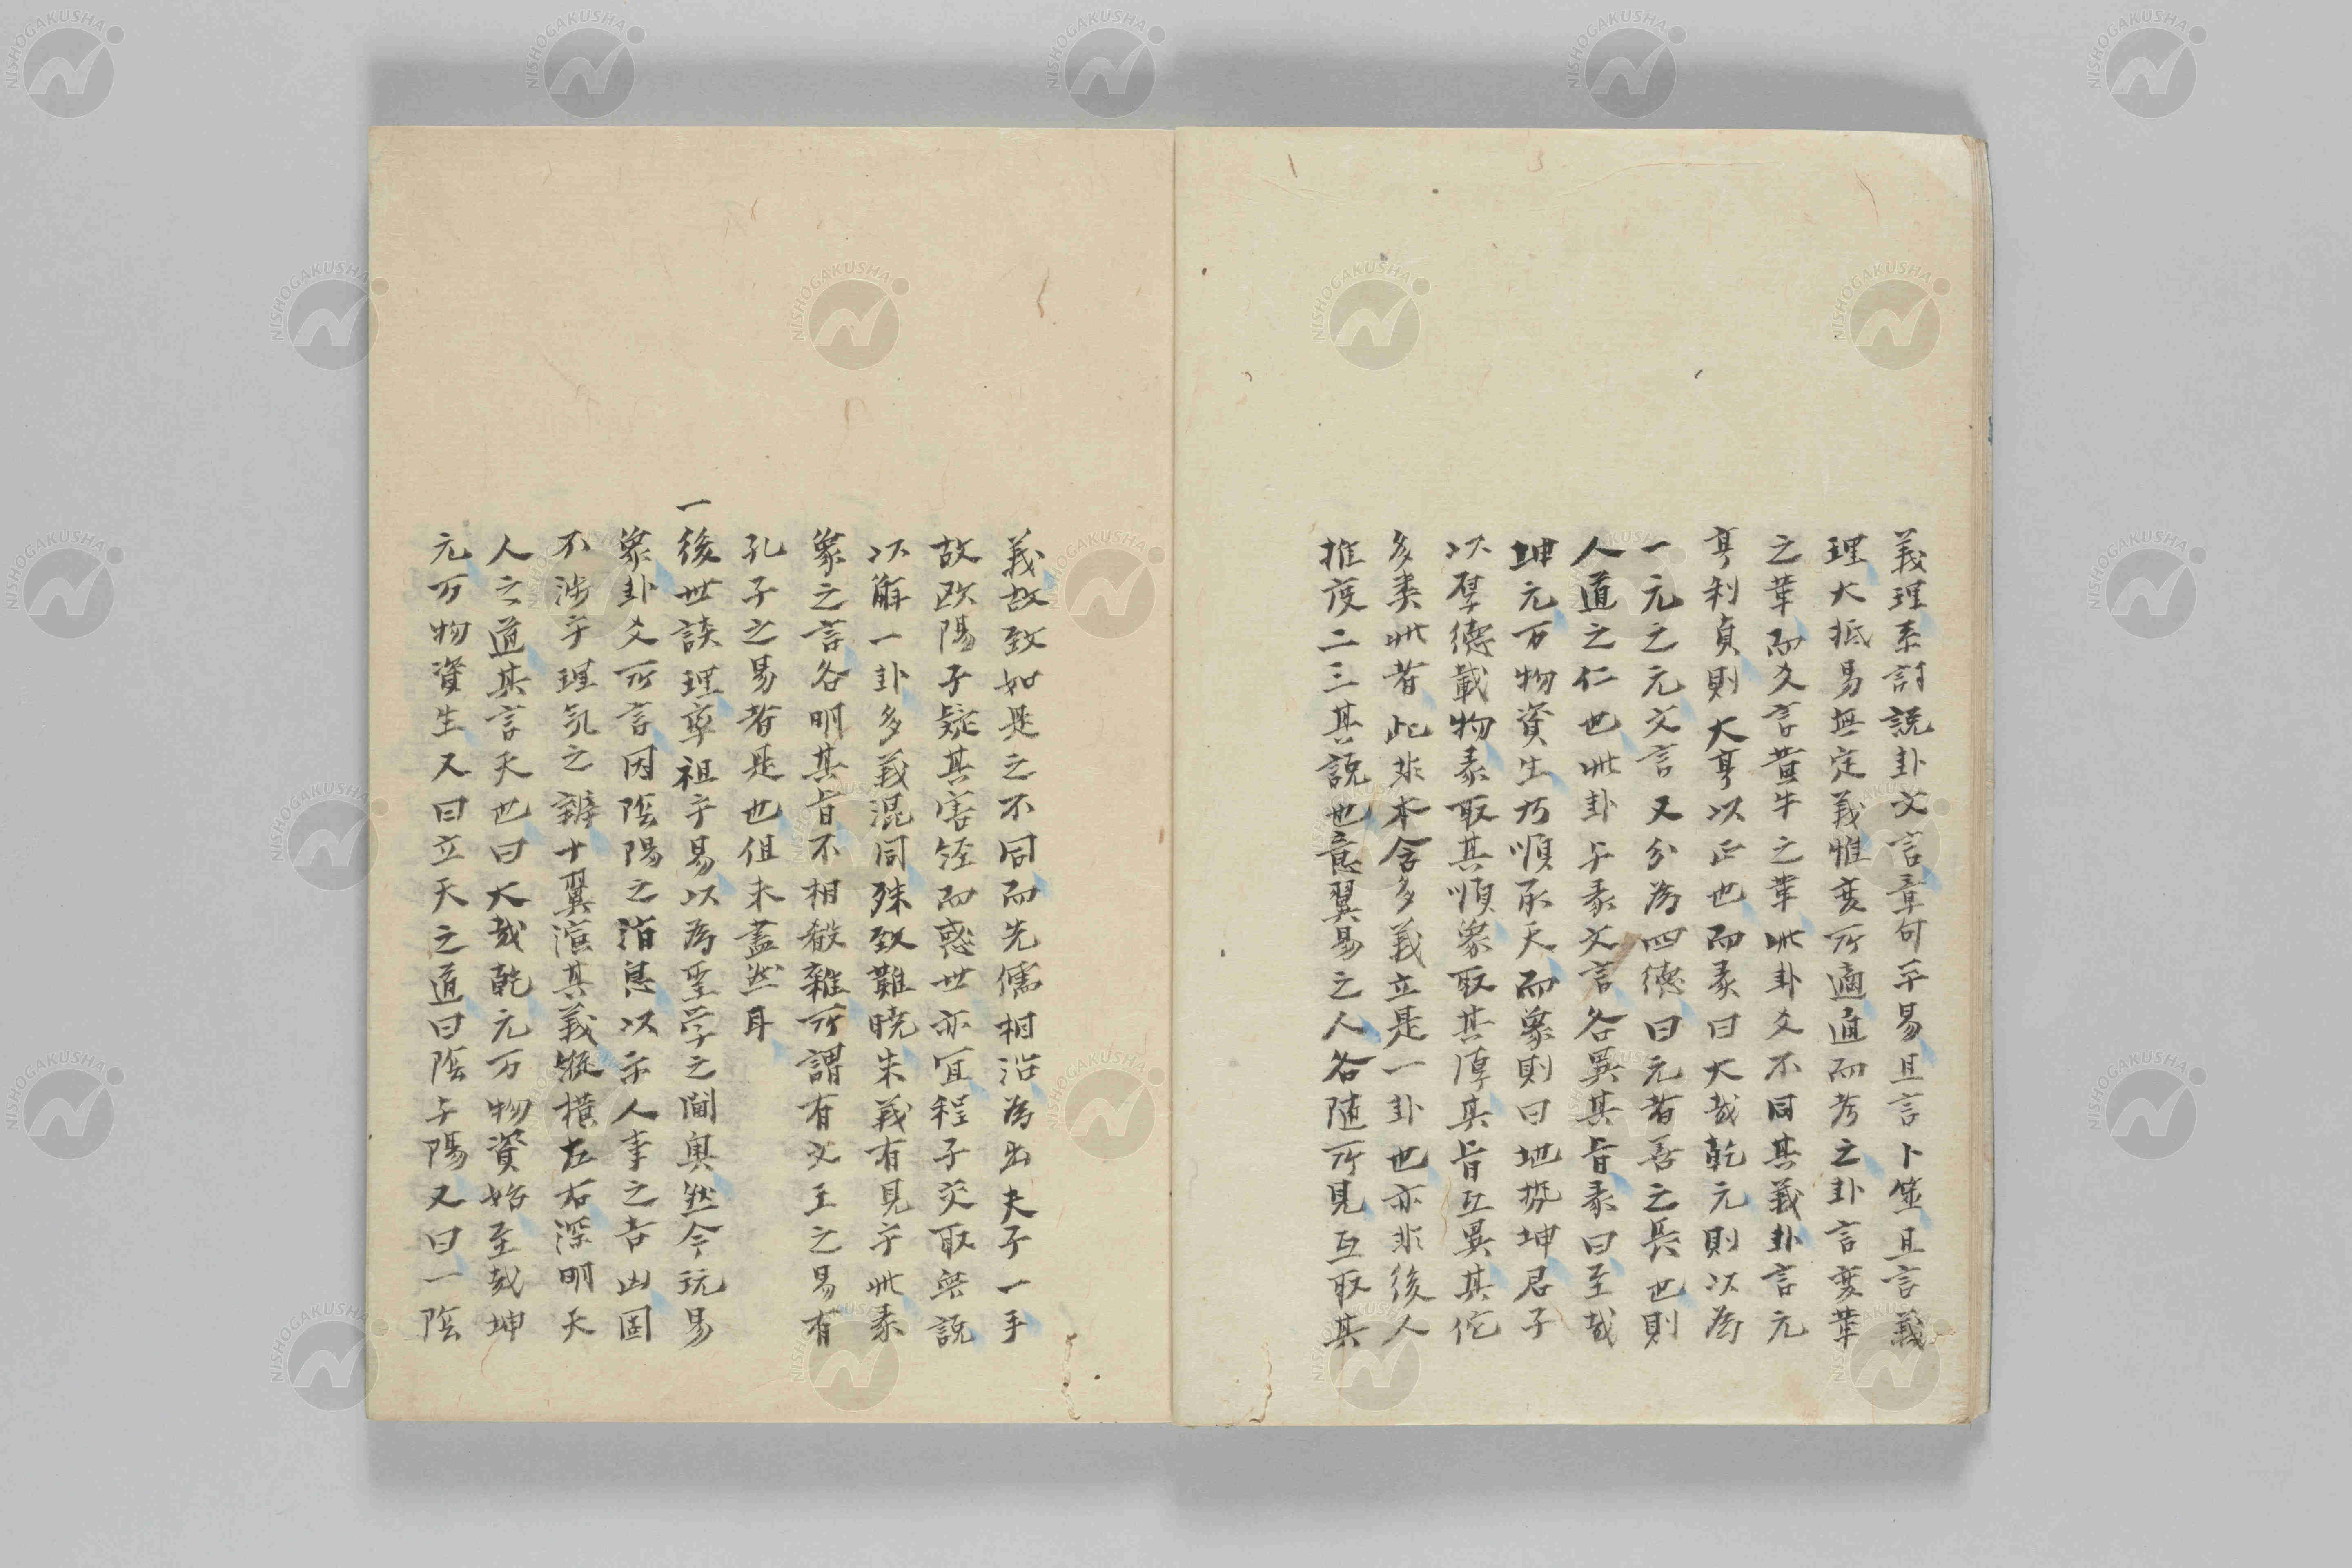 義理系討説卦文言章句平易且言卜筮且言義
理大抵易無定義惟変所適通而考之卦言変革
之革而爻言黄牛之革此卦爻不同其義卦言元
亨利貞則大亨以正也而彖曰大哉乾元則以為
一元之元文言又分為四徳曰元者善之長也則
人道之仁也此卦与彖文言各異其旨彖曰至哉
坤元万物資生乃順承天而象則曰地勢坤君子
以厚徳載物彖取其順象取其厚其旨互異其佗
多类此者此非本含多義立是一卦也亦非後人
推度二三其説也意翼易之人各随所見互取其
義故致如是之不同而先儒相沿為出夫子一手
故欧陽子疑其害経而惑世亦宜程子交取旡説
以解一卦多義混同殊致難暁朱義有見乎此彖
象之言各明其旨不相殽雑所謂有文王之易有
孔子之易者是也但未盡然耳
一後世談理率祖乎易以為聖学之閫奥然今玩易
象卦爻所言因陰陽之消息以示人事之吉凶固
不渉乎理気之辨十翼演其義縦横左右深明天
人之道其言天也曰大哉乾元万物資始至哉坤
元万物資生又曰立天之道曰陰与陽又曰一陰
NISHOGAKUSHA